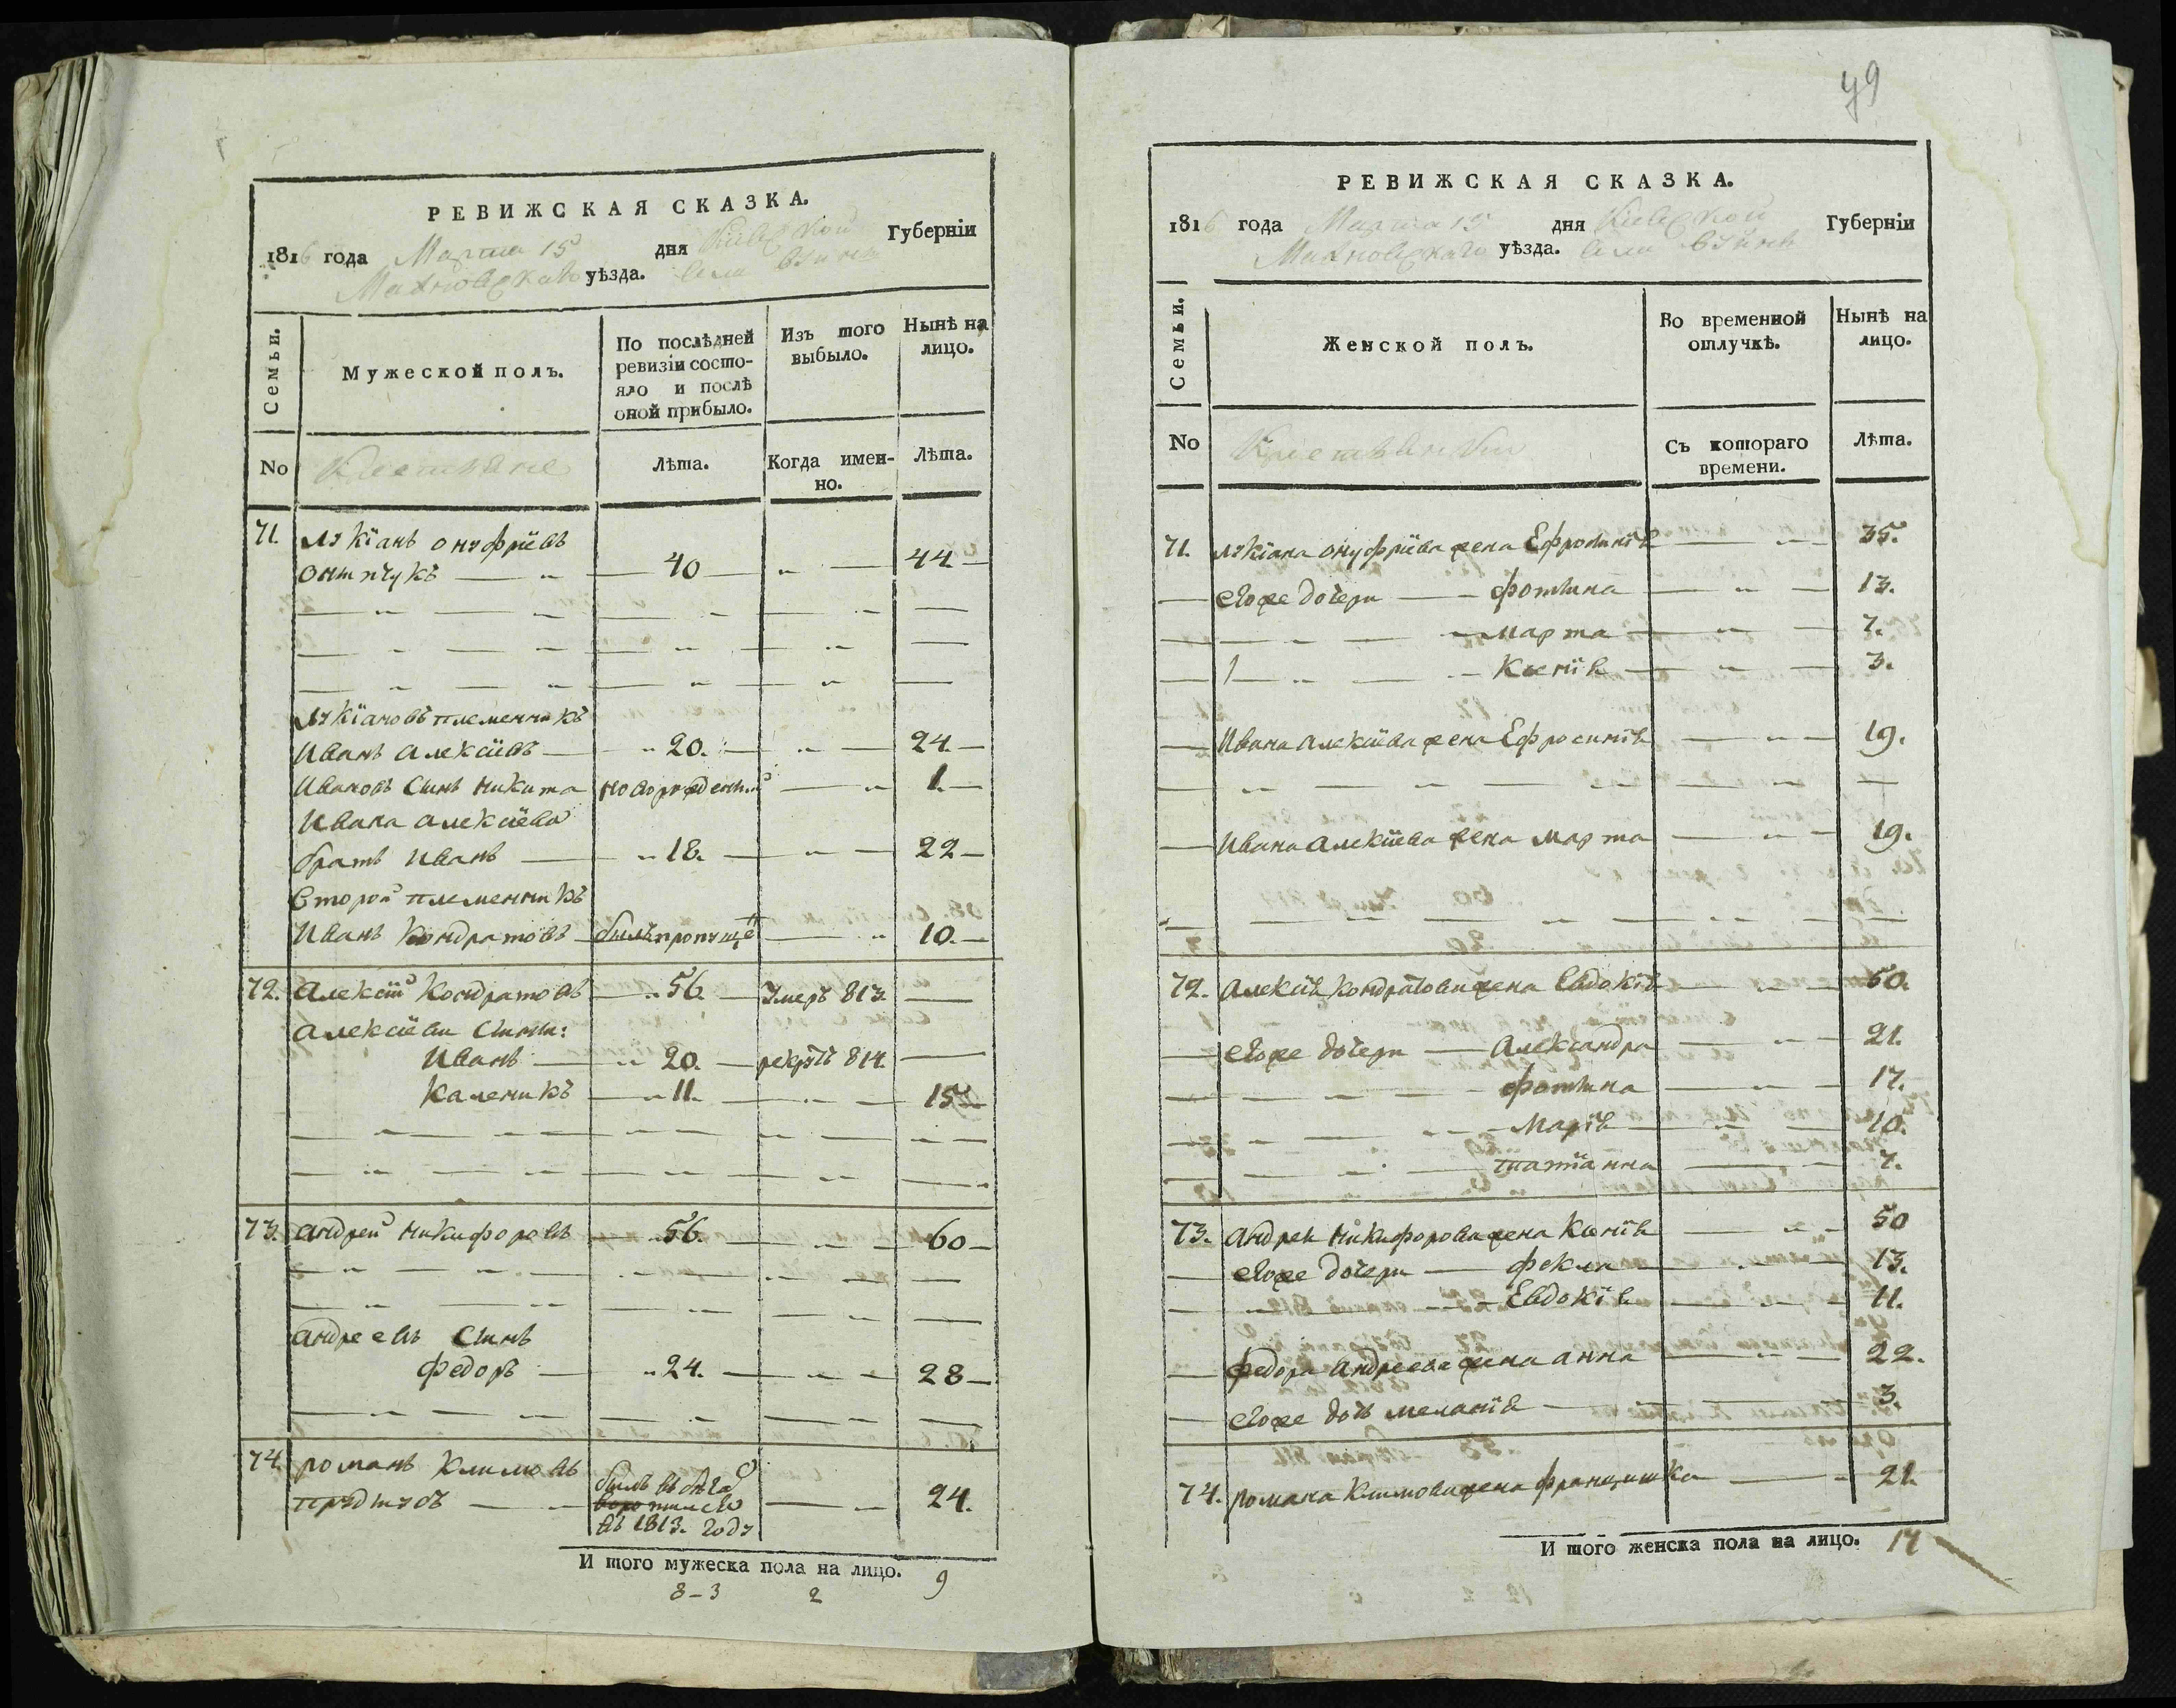 РЕВИЖСКАЯ СКАЗКА.
1816 года Марта 15 дня Киевской Губернїи
Махновскаго уѣзда. Села
Семьи.
Мужеской полъ.
По послѣдней ревизїи состояло и послѣ оной прибыло.
Изъ того выбыло.
Нынѣ на лицо.
No
Крестьяне
Лѣта.
Когда именно.
Лѣта.
71. Лукїанъ Онуфрїевъ
— „ — 40 — „ — 44 —
Лукїановъ племенникъ
Иванъ Алексїевъ — „ 20. — „ — 24 —
Ивановъ Сынъ Никита новорожденный — „ 1. —
Ивана Алексїева
братъ Иванъ — „ 18. — „ — 22 —
Второй племенникъ
Иванъ Кондратовъ — былъ пропуще — „ 10. —
72. Алексїй Кондратовъ — „ 56. — Умеръ 813. —
Алексїеви Сыни:
Иванъ — „ 20. — рекрутъ 814. —
Каленикъ — „ 11. — „ — 15 —
73. Андрей Никифоровъ — 56. — „ — 60 —
Андреевъ Сынъ
Федоръ — „ 24. — „ — 28 —
74. Романъ Климовъ
былъ въ бѣга
— „ — 24.
въ 1813. году
И того мужеска пола на лицо. 9
8 – 3 2
49
РЕВИЖСКАЯ СКАЗКА.
1816 года Марта 15 дня Киевской Губернїи
Махновскаго уѣзда. Села
Семьи.
Женской полъ.
Во временной отлучкѣ.
Нынѣ на лицо.
No
Крестьянки
Съ котораго времени.
Лѣта.
71. Лукїана Онуфрїева жена Ефросинїя — „ — 35.
егоже дочери — фотина — „ — 13.
— „ — марта — „ — 7.
— „ — Ксенїя — „ — 3.
Ивана Алексїева жена Ефросинїя — „ — 19.
Ивана Алексїева жена Марта — „ — 19.
72. Алексїя Кондратови жена Евдокїя — „ — 50.
егоже дочери — Александра — „ — 21.
— фотина — „ — 17.
— „ — Марїя — „ — 10.
— „ — татїанна — 7.
73. Андрея Никифорова жена Ксенїя — „ — 50
егоже дочери — фекла — „ — 13.
— „ — Евдокїя — „ — 11.
федора Андреева жена анна — „ — 22.
егоже дочь меланїя — 3.
74. Романа Климови жена францишка — „ 21.
И того женска пола на лицо. 17